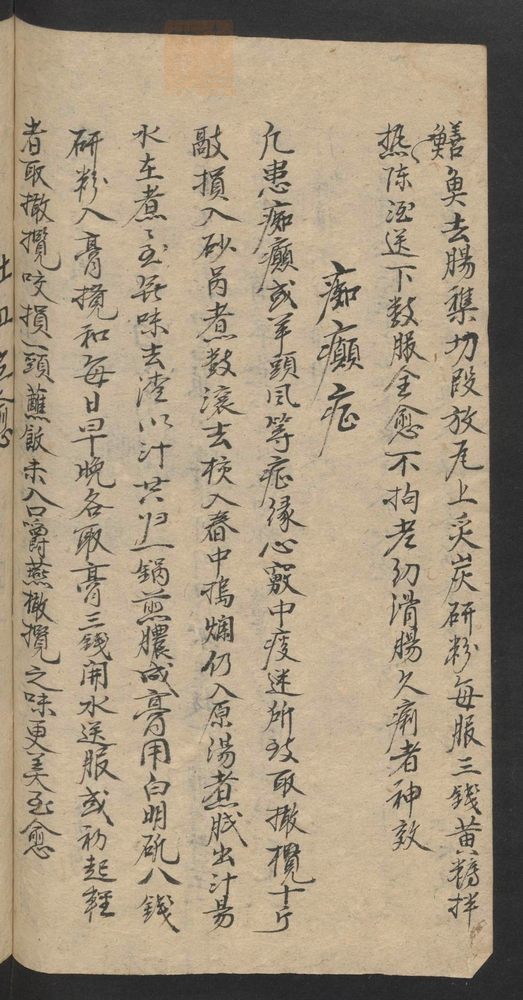 鱔魚去腸雜切段放瓦上炙炭研粉每服三錢黃糖拌
熱陳酒送下数服全愈不拘老幼滑腸久痢者神效
痴癲症
凡患痴癲或羊頭风等症缘心竅中痰迷所致取撖欖十斤
敲損入砂呙煮数滾去核入舂中搗爛仍入原湯煮胝出汁易
水在煮〻至無味去渣以汁共归一鍋煎膿成膏用白明矾八錢
研粉入膏攪和每日早晚各取膏三錢開水送服或初起輕
者取撖欖咬損一頭蘸飯未入口嚼蕪撖欖之味更美至愈